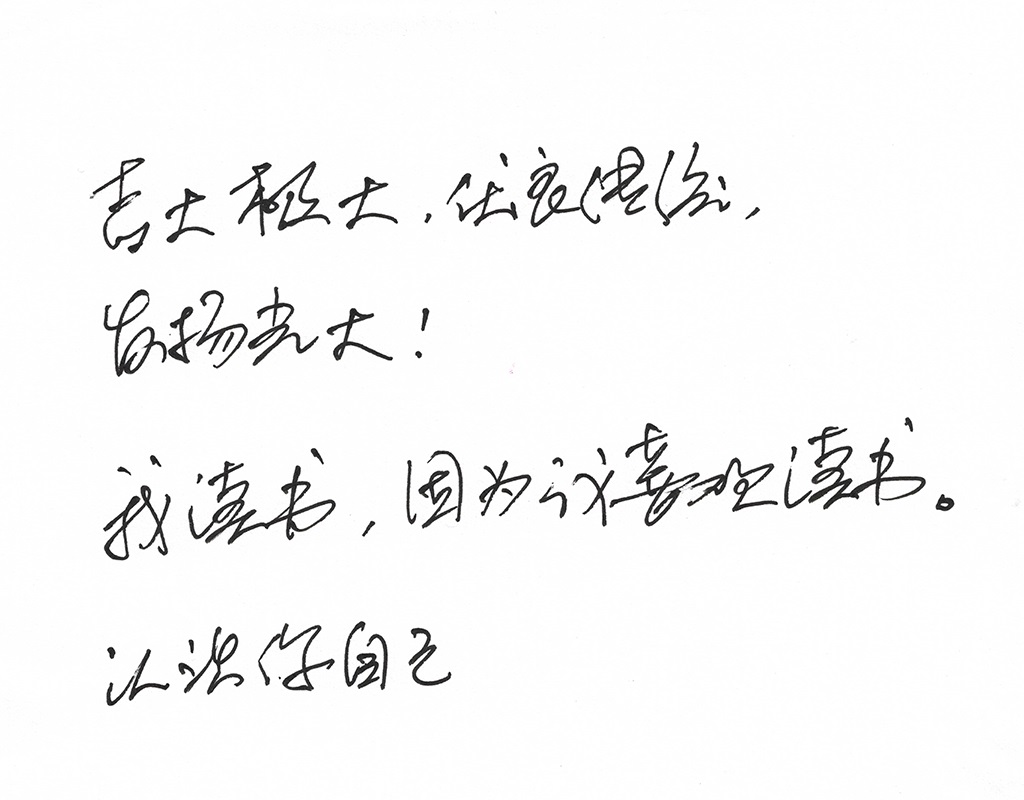 吉大极大，优良传统，
发扬光大！
我读书，因为我喜欢读书。
认识你自己